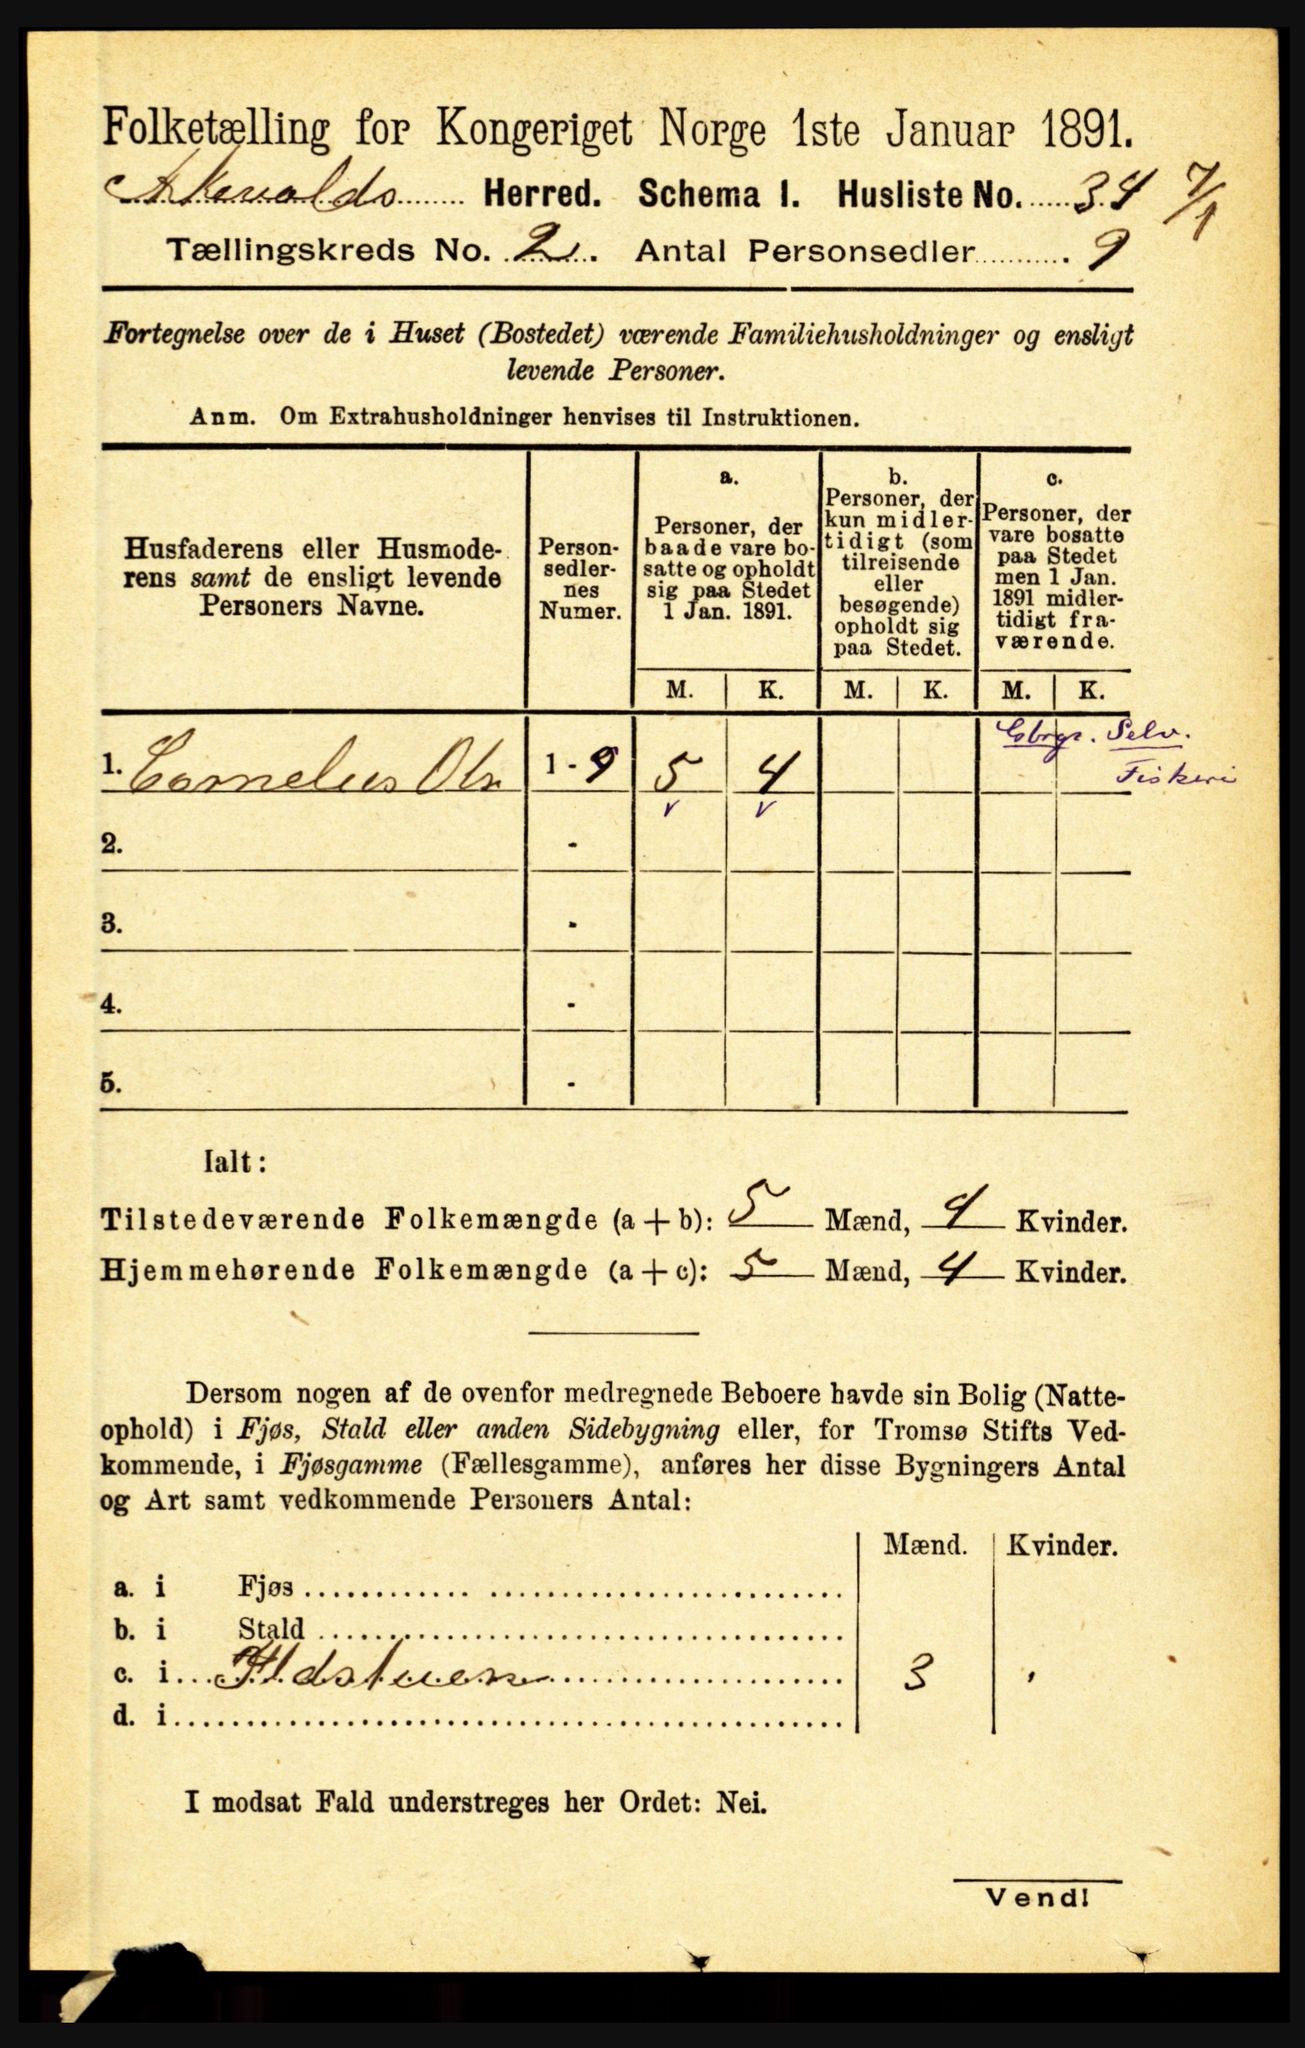 Folketælling for Kongeriget Norge 1ste Januar 1891.
Herred. Schema I. Husliste No. 34 7/1
Tællingskreds No. 2. Antal Personsedler 9
Fortegnelse over de i Huset (Bostedet) værende Familiehusholdninger og ensligt
levende Personer.
Anm. Om Extrahusholdninger henvises til Instruktionen.
Husfaderens eller Husmode-
rens samt de ensligt levende
Personers Navne.
Person-
sedler-
nes
Numer.
a.
Personer, der
baade vare bo-
satte og opholdt
sig paa Stedet
1 Jan. 1891.
b.
Personer, der
kun midler-
tidigt (som
tilreisende
eller
besøgende)
opholdt sig
paa Stedet.
c.
Personer, der
vare bosatte
paa Stedet
men 1 Jan.
1891 midler-
tidigt fra-
værende.
M. K. M. K. M. K.
Gbrgr. Selv.
Fiskeri
1. Cornelius Olsn 1 - 9 5 4
2. -
3. -
4. -
5. -
Ialt:
Tilstedeværende Folkemængde (a + b): 5 Mænd, 4 Kvinder.
Hjemmehørende Folkemængde (a + c): 5 Mænd, 4 Kvinder.
Dersom nogen af de ovenfor medregnede Beboere havde sin Bolig (Natte-
ophold) i Fjøs, Stald eller anden Sidebygning eller, for Tromsø Stifts Ved-
kommende, i Fjøsgamme (Fællesgamme), anføres her disse Bygningers Antal
og Art samt vedkommende Personers Antal:
Mænd. Kvinder.
a. i Fjøs
b. i Stald
c. i Ildstuen 3
d. i
I modsat Fald understreges her Ordet: Nei.
Vend!